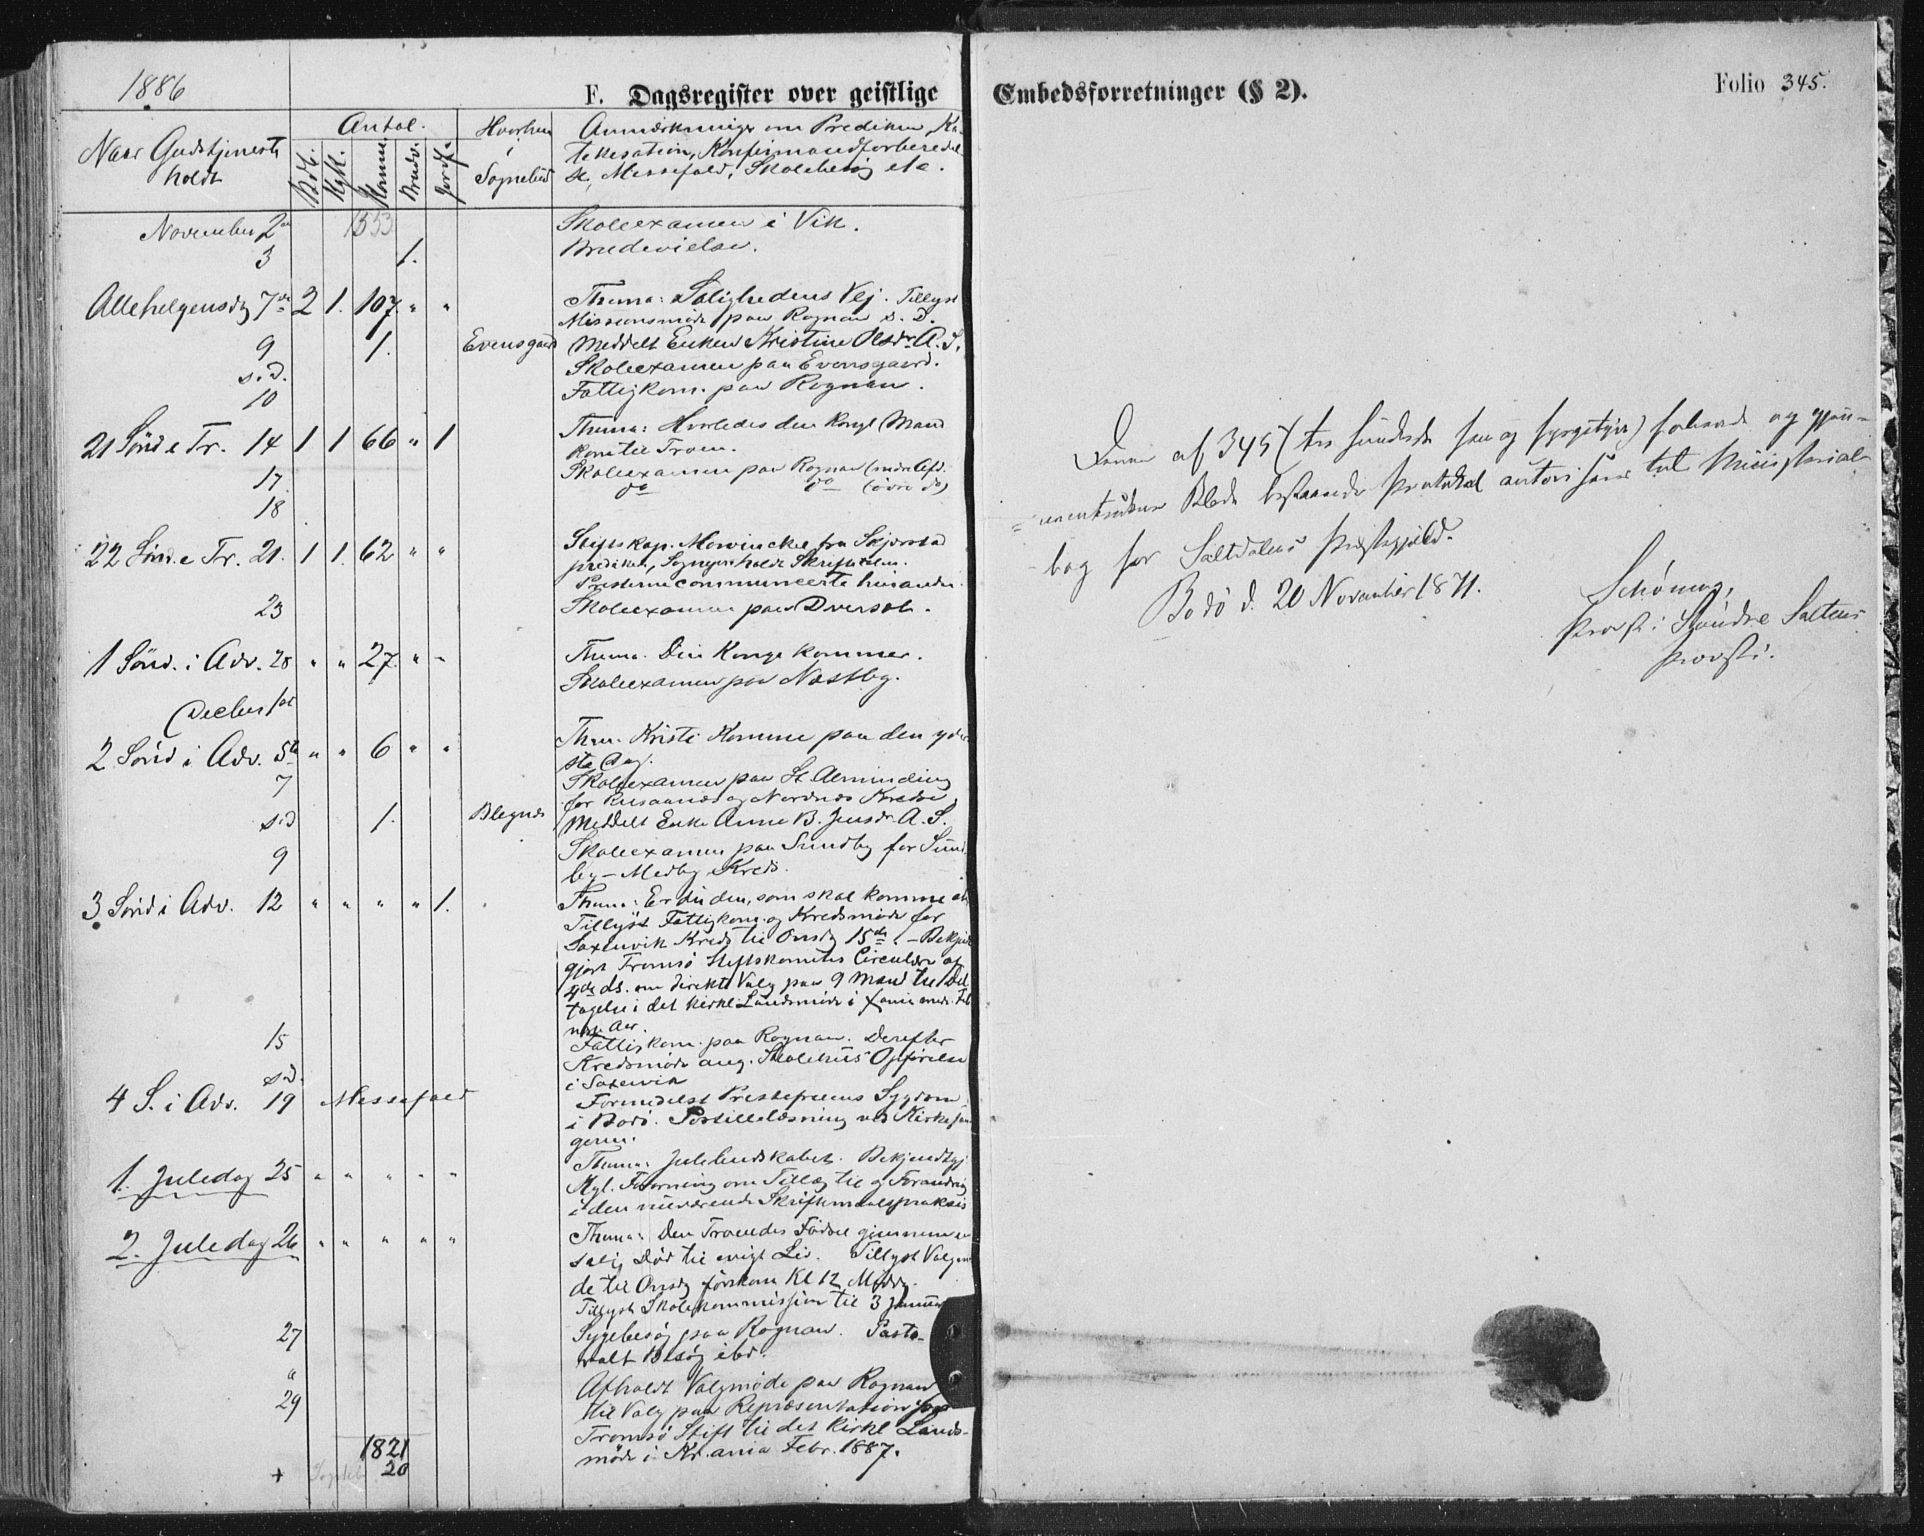 1886
F. Dagsregister over geistlige
Embedsforretninger (§ 2).
Folio 345.
Naar Gudstjeneste holdt
Antal.
Hvorhen i Sognebud
Anmærkninger om Prediken, Ka-
tekesation, Konfirmandforberedel-
se, Messefald, Skolebesøg etc.
November 2den 1553 Skoleexamen i Vik.
3 1. Brudevielse.
Allehelgensdg 7de 2 1. 107. " " Thema: Salighedens Vej. Tillyst
Missionsmøde paa Rognan s. D.
9 1. Evensgaard Meddelt Enken Kristine Olsdr A. S.
s.d. Skoleexamen paa Evensgaard.
10 Fattigkom. paa Rognan.
21 Sönd e Tr. 14 1 1 66 " 1 Thema: Hvorledes den kongl Mand
kom til Troen.
17 Skoleexamen paa Rognan (nedre Afd.
18 do do (övre do)
22 Sönd e Tr. 21. 1 1. 62 " " Stiftskap. Mowinckel fra Skjerstad
prediket, Sognepr. holdt Skriftetalen.
Presterne communicerte hinanden.
23 Skoleexamen paa Dverset.
1 Sönd. i Adv. 28 " " 27. " " Thema. Din Konge kommer.
Skoleexamen paa Næstby.
Decber 1st
2 Sönd i Adv. 5te " " 6 " " Thema. Kristi Komme paa den yder-
ste Dag.
7 Skoleexamen paa St. Alminding
for Rusaanæs og Nordnæs Kredse.
s.d 1. Blegnes Meddelt Enke Anne B. Jensdr A. S.
9 Skoleexamen paa Sundby for Sund-
by-Medby Kreds.
3 Sönd i Adv. 12 " " " " 1. Thema: Er du den, som skal komme
Tillyst Fattigkom. og Kredsmöde for
Saxenvik Kreds til Onsdg 15de. - Bekjendt-
gjort Tromsö Stiftskomites Circulære af
4de ds. om direkte Valg paa 9 Mænd til Del-
tagelse i det kirkl. Landsmöde i Xania
næste Aar.
15 Fattigkom. paa Rognan. Derefter
s.d. Kredsmöde ang. Skolehus' Opförelse
i Saxenvik
4 S. i Adv. 19 Messefald Formedelst Prestefruens Sygdom
i Bodö. Postillelæsning ved Kirkesan-
geren.
1. Juledag 25 " " " " " Thema: Julebudskabet. Bekjendtgj
Kgl. Anordning om Tillæg til og Forandring
i den nuværende Skriftemaalspraksis
2. Juledag 26 " " " " " Thema: Den Troendes Födsel gjennem en
salig Död til evigt Liv. Tillyst Valgmö-
de til Onsdg förstkom Kl 12 Middg.
Tillyst Skolekommission til 3 Januar
27 Sygebesög paa Rognan. Pasto-
ralt Besög ibd.
29 Afholdt Valgmöde paa Rognan
til Valg paa Repræsentation for
Tromsö Stift til det kirkl Lands-
möde i Kr.ania Febr. 1887.
1821
+ 20
Denne af 345 (tre hundrede fem og fyrgetyve) folierede og gjen-
nemtrukne Blade bestaaende Protokol autoriseres til Ministerial-
bog for Saltdalens Præstegjæld.
Bodö d. 20 November 1871.
Schönning,
Provst i Söndre Saltens
Provsti.